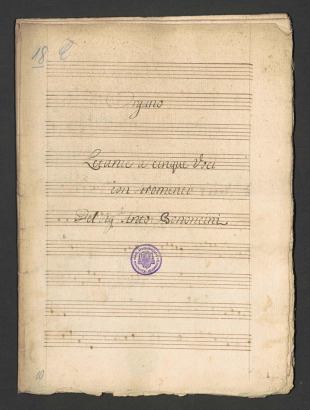 18
Organo
Letanie a cinque Voci
con stromenti
Del Sig.r Anto. Bononcini
10